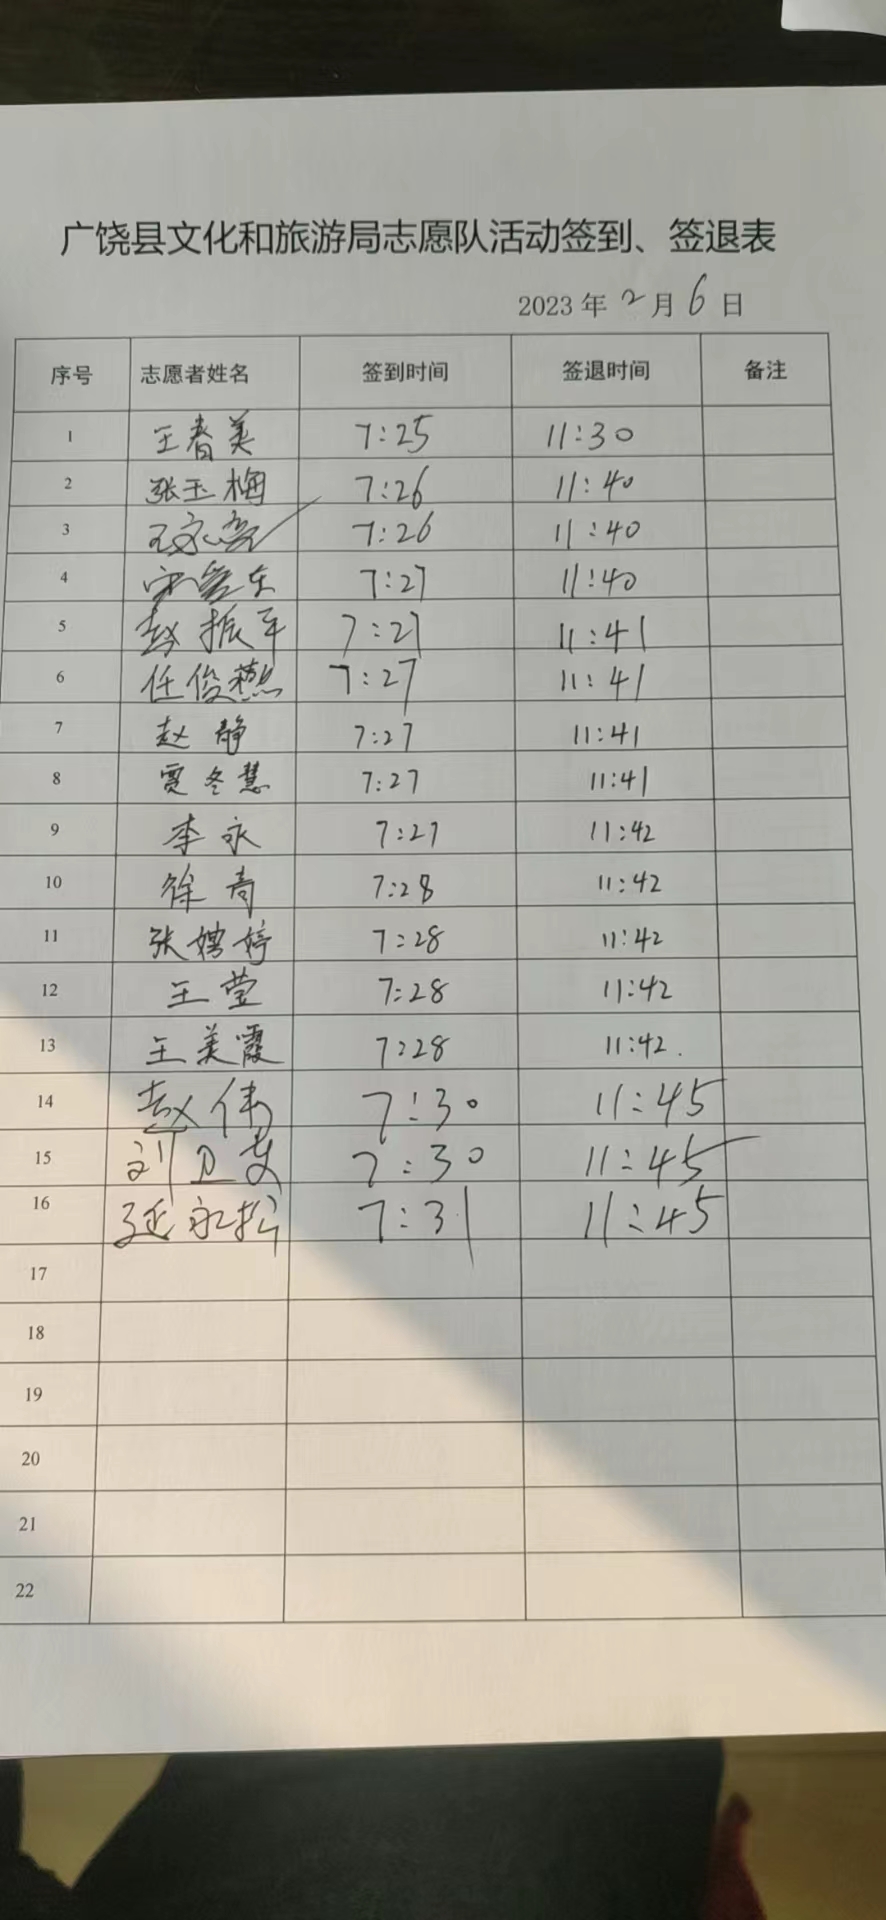 广饶县文化和旅游局志愿队活动签到、签退表
2023 年 2 月 6 日
序号 志愿者姓名 签到时间 签退时间 备注
1 王春美 7:25 11:30
2 张玉梅 7:26 11:40
3 7:26 11:40
4 7:27 11:40
5 赵振军 7:27 11:41
6 任俊燕 7:27 11:41
7 赵静 7:27 11:41
8 贾冬慧 7:27 11:41
9 李永 7:27 11:42
10 徐青 7:28 11:42
11 张娉婷 7:28 11:42
12 王莹 7:28 11:42
13 王美霞 7:28 11:42.
14 赵伟 7:30 11:45
15 刘卫 7:30 11:45
16 延永松 7:31 11:45
17
18
19
20
21
22